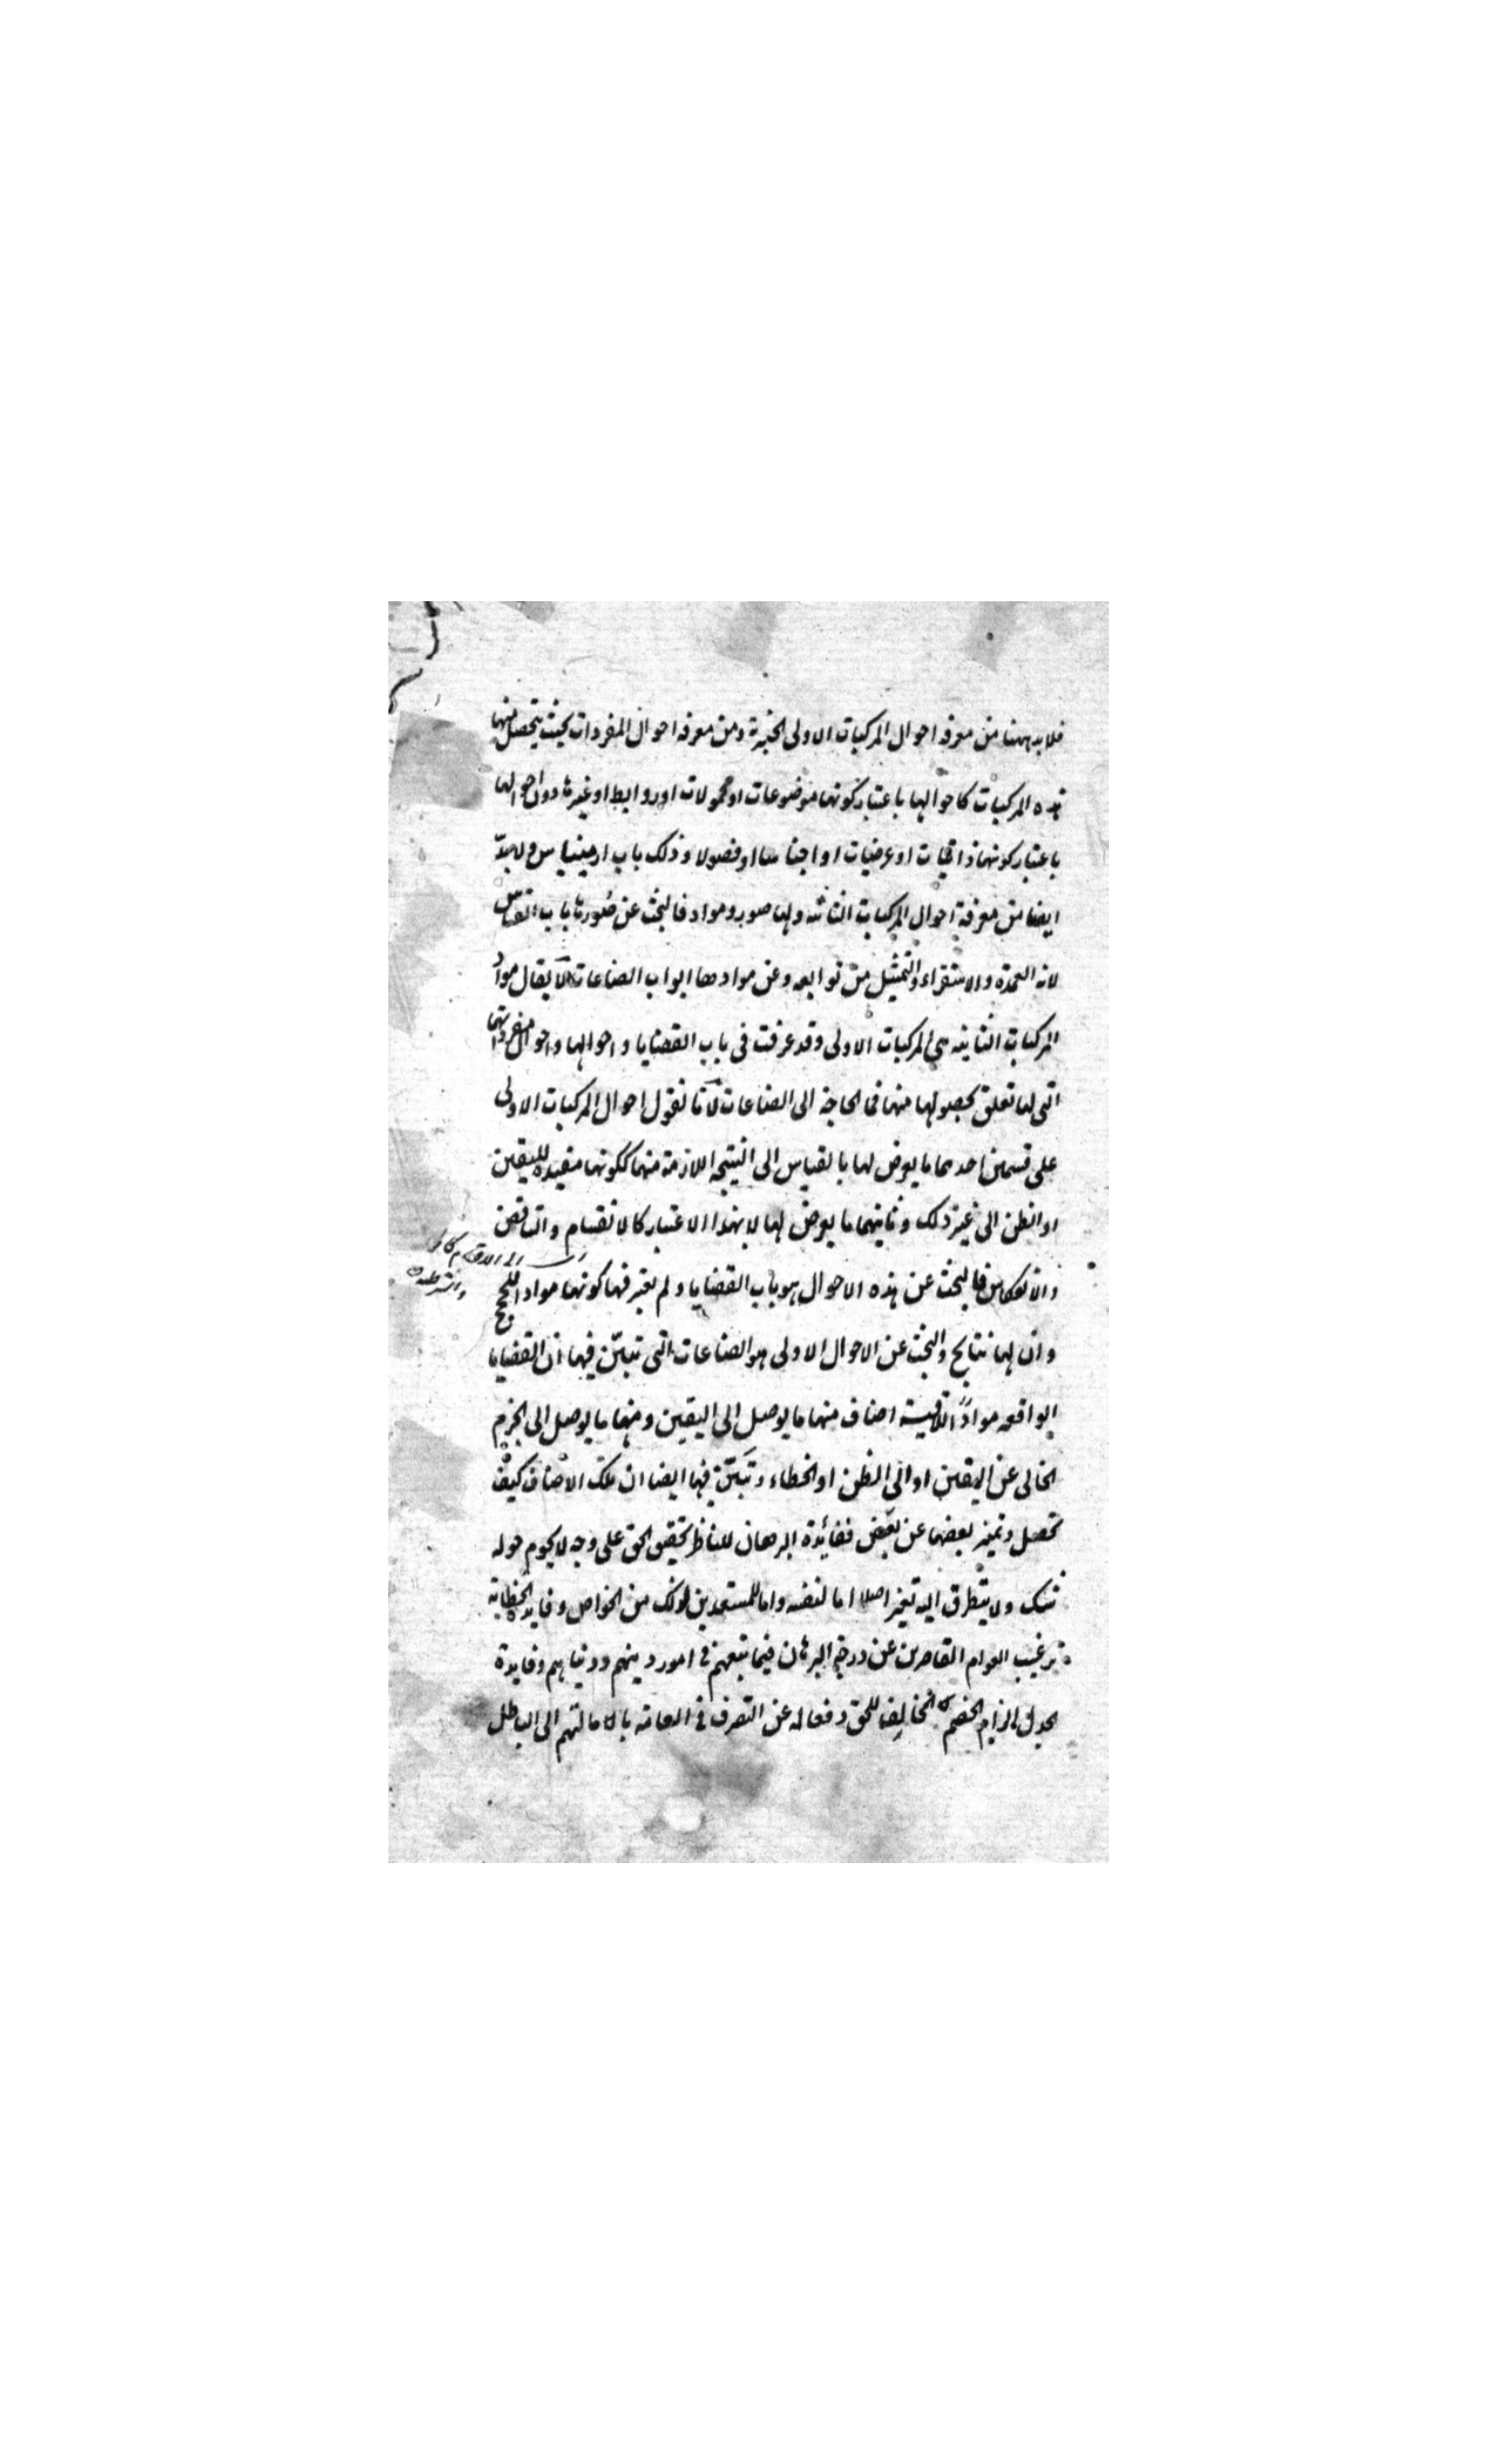 فلا بد ههنا من معرفه احوال المركبات الاولى الخبرية ومن معرفه احوال المفردات بحيث يتحصل منها
هذه المركبات كاحوالها باعتبار كونها موضوعات او محمولات او روابط او غيرها دون احوالها
باعتبار كونها ذاتيات او عرضيات او اجناسا او فصولا وذلك باب ارمينياس ولا بدّ
ايضا من معرفة احوال المركبات الثانيه ولها صور ومواد فالبحث عن صورها باب القياس
لانه العمدة والاستقراء والتمثيل من توابعه وعن موادها ابواب الصناعات لا يقال موادّ
المركبات الثانيه هى المركبات الاولى وقد عرفت فى باب القضايا واحوالها واحوال مفرداتها
التى لها تعلق بحصولها منها فما الحاجة الى الصناعات لانا نقول احوال المركبات الاولى
على قسمين احدهما ما يعرض لها بالقياس الى النتيجه اللازمة منها ككونها مفيده لليقين
او الظن الى غير ذلك وثانيهما ما يعرض لها لا بهذا الاعتبار كالانقسام والتناقض
والانعكاس فالبحث عن هذه الاحوال هو باب القضايا ولم يعتبر فيها كونها مواد الحجج
وان لها نتايج والبحث عن الاحوال الاولى هو الصناعات التى تبيّن فيها ان القضايا
الواقعه موادّ الاقيسة اصناف منها ما يوصل الى اليقين ومنها ما يوصل الى الجزم
الخالى عن اليقين او الى الظن او الخطاء وتبيّن فيها ايضا ان تلك الاصناف كيف
تحصل وتميز بعضها عن بعض ففائدة البرهان للناظر تحقيق الحق على وجه لا يحوم حوله
شك ولا يتطرق اليه تغير اصلا اما لنفسه واما للمستعدين لذلك من الخواص وفايدة الخطابة
ترغيب العوام القاصرين عن درجة البرهان فيما ينفعهم فى امور دينهم ودنياهم وفايدة
الجدل الزام الخصم المخالف للحق دفعا له عن التصرف فى العامة بالامالتهم الى الباطل